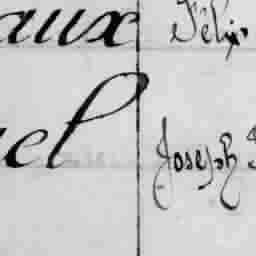 aux Félix
el Joseph